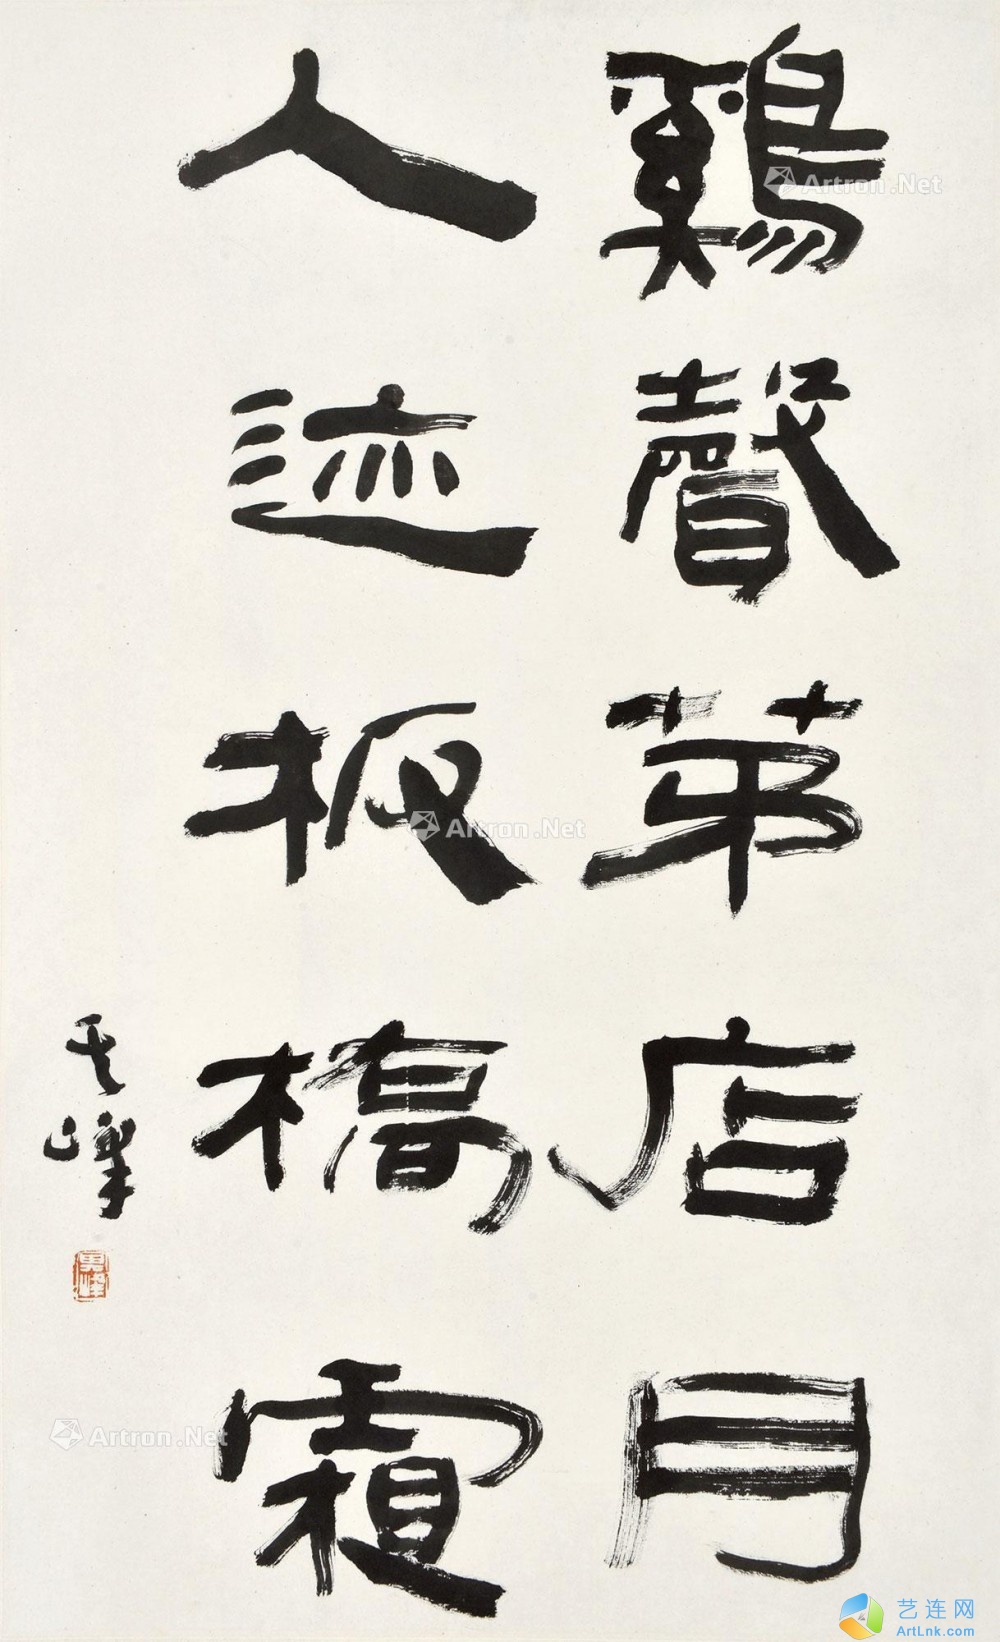 鷄聲茅店月
人迹板橋霜
其峰
其峰
Artron.Net
Artron.Net
Artron.Net
艺连网
ArtLnk.com